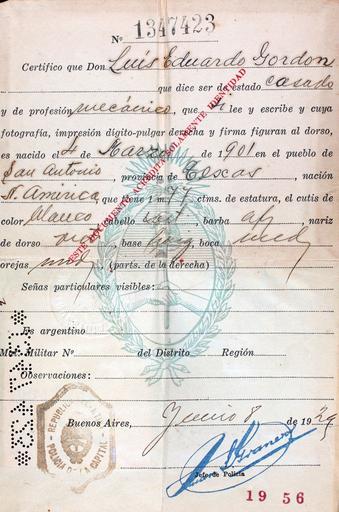 Nº 1347423
Certifico que Don Luis Eduardo Gordon
que dice ser de estado casado
y de profesión mecánico, que si lee y escribe y cuya
fotografía, impresión dígito-pulgar derecha y firma figuran al dorso,
es nacido el 4 de Marzo de 1901 en el pueblo de
San Antonio, provincia de Texas, nación
N. América, que tiene 1 m. 77 ctms. de estatura, el cutis de
color blanco cabello cast barba af, nariz
de dorso base boca med
orejas med (parts. de la derecha)
Señas particulares visibles:
Es argentino
Mat. Militar Nº del Distrito Región
Observaciones:
Buenos Aires, Junio 8 de 1929
Jefe de Policía
1956
ESTE DOCUMENTO ACREDITA SOLAMENTE IDENTIDAD
POLICIA DE LA CAPITAL